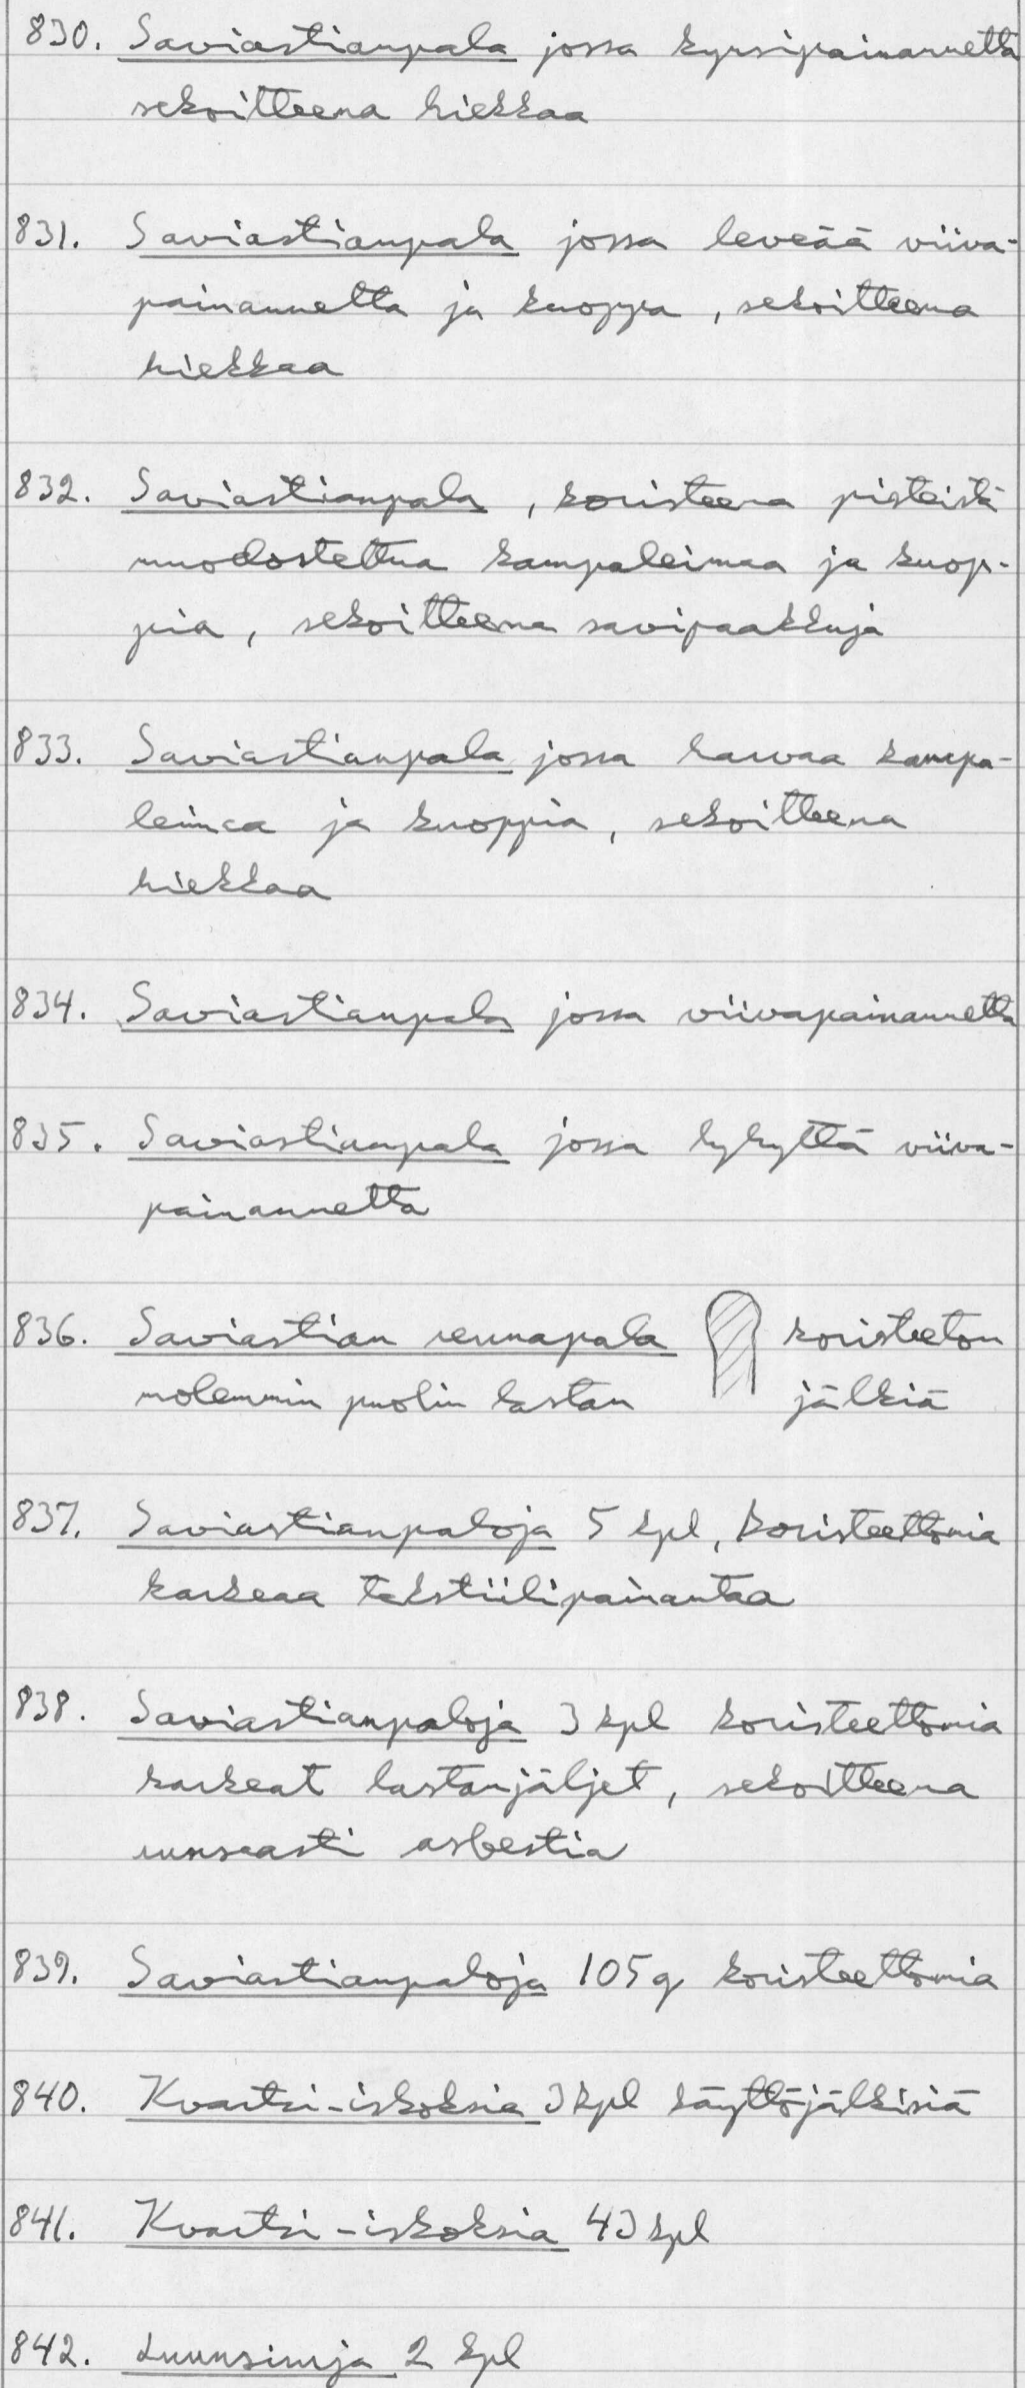 830. Saviastianpala jossa kynsipainannetta
sekoitteena hiekkaa
831. Saviastianpala jossa leveää viiva-
painannetta ja kuoppa, sekoitteena
hiekkaa
832. Saviastianpala, koristeena pisteistä
muodostettua kampaleimaa ja kuop-
pia, sekoitteena savipaakkuja
833. Saviastianpala jossa harvaa kampa-
leimaa ja kuoppia, sekoitteena
hiekkaa
834. Saviastianpala jossa viivapainannetta
835. Saviastianpala jossa lyhyttä viiva-
painannetta
836. Saviastian reunapala koristeeton
molemmin puolin lastan jälkiä
837. Saviastianpaloja 5 kpl, koristeettomia
karkeaa tekstiilipainantaa
838. Saviastianpaloja 3 kpl koristeettomia
karkeat lastanjäljet, sekoitteena
runsaasti asbestia
839. Saviastianpaloja 105 g koristeettomia
840. Kvartsi-iskoksia 3 kpl käyttöjälkisiä
841. Kvartsi-iskoksia 43 kpl
842. Luunsiruja 2 kpl